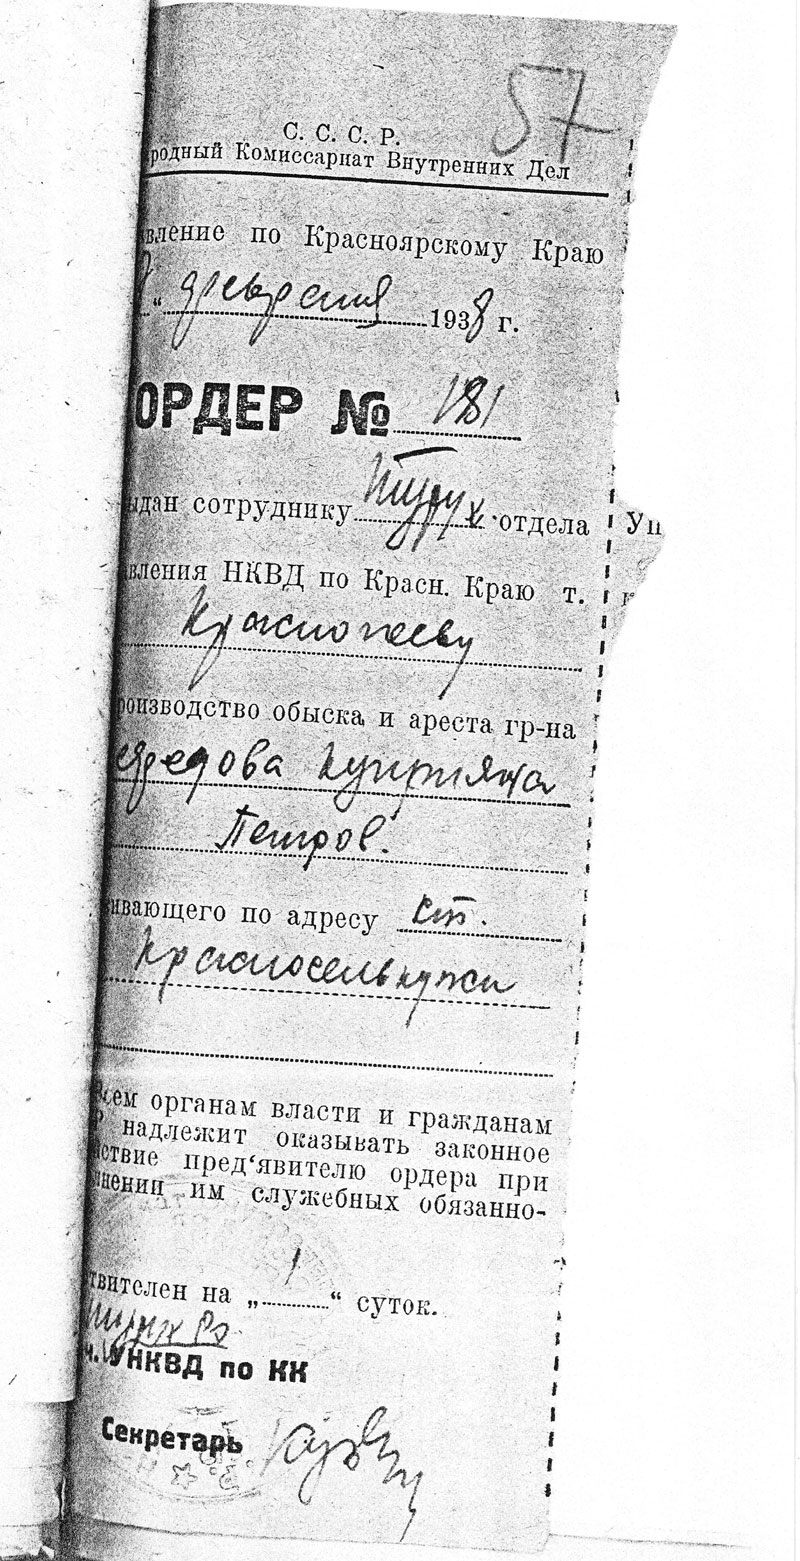 57
С. С. С. Р.
родный Комиссариат Внутренних Дел
вление по Красноярскому Краю
“ февраля 1938 г.
ОРДЕР № 181
ыдан сотруднику Турух. отдела Уп
вления НКВД по Красн. Краю т.
роизводство обыска и ареста гр-на
Куприяна
Петров.
ивающего по адресу ст.
Красноселькупки
сем органам власти и гражданам
Р надлежит оказывать законное
йствие пред‘явителю ордера при
лнении им служебных обязанно-
твителен на „ 1 “ суток.
Турух РО
ч. УНКВД по КК
Секретарь